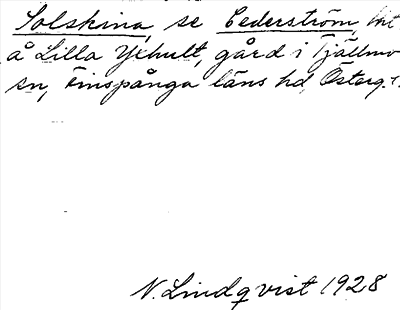 Solskina, se Cederström, bit
å Lilla Yxhult, gård i Tjällmo
sn, Finspånga läns hd, Österg. l.
N. Lindqvist 1928